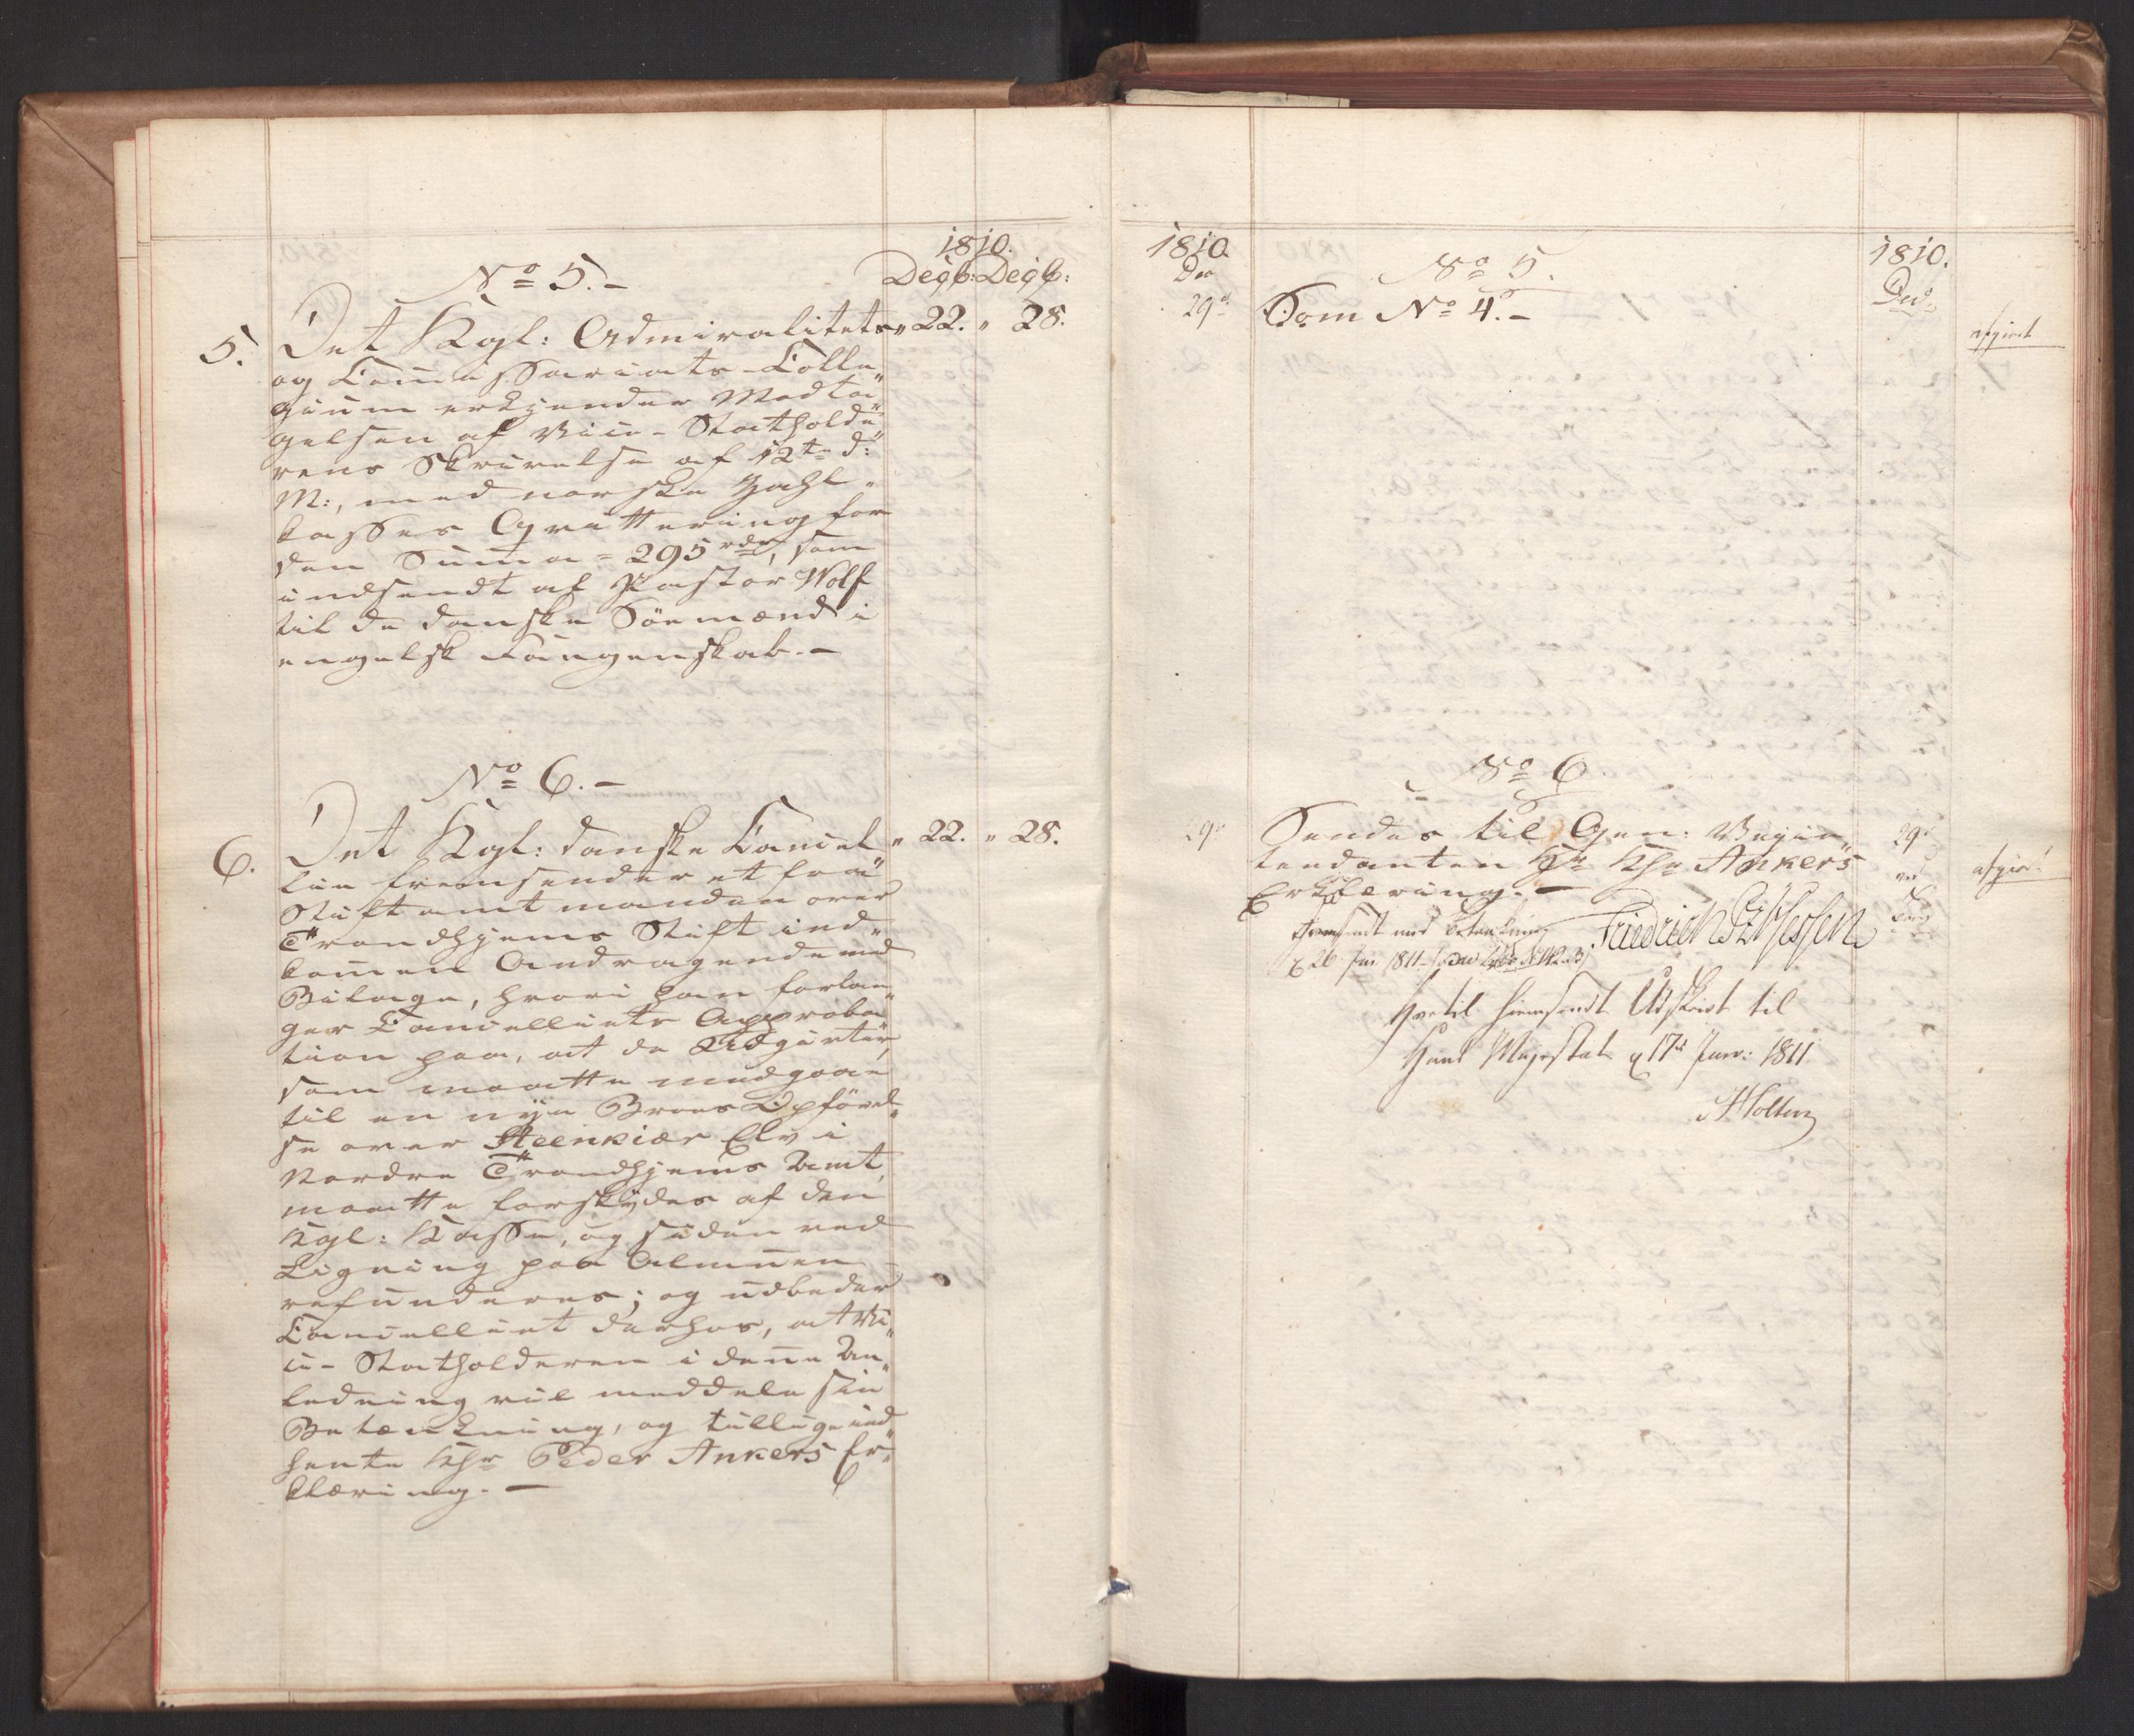 1810.
Decb: Decb:
No 5.-
5. Det Kgl: Admiralitets „ 22. „ 28.
og Com̅issariats-Colle„
gium erkjender Modta„
gelsen af Vice-Statholde„
rens Skrivelse af 12te d:
M:, med norske Zahl„
kasses Qvittering for
den Sum̅a = 295 rdr, som
indsendt af Pastor Wolf
til de danske Söemænd i
engelsk Fangenskab.-
No 6.-
6. Det Kgl: danske Cancel„ „ 22. „ 28.
lie fremsender et fra
Stiftamtmanden over
Trondhjems Stift ind„
kom̅en Andragende med
Bilage, hvori han forlan„
ger Cancelliets Approba„
tion paa, at de Udgivter,
som maatte medgaae
til en nye Broes Opförel„
se over Steenkiær Elv i
Nordre Trondhjems Amt,
maatte forskydes af den
Kgl: Kasse, og siden ved
Ligning paa Almuen
refunderes; og udbeder
Cancelliet derhos, at Vi„
ce-Statholderen i denne An„
ledning vil meddele sin
Betænkning, og tillige ind„
hente Khr Peder Ankers Er„
klæring.-
1810. 1810.
Dec Dec
No 5.
29 Som No 4.-
afgivet
No 6.
29 Sendes til Gen: Vejin„ 29
tendanten Hr Khr Ankers
Erklæring.-
afgivet
fremsendt med Betænkning Friedrich PzHessen
26 Jan 1811
Hertil hiemsendt Udskrivt til
Hans Majestæt 17de Janv: 1811.
Holten